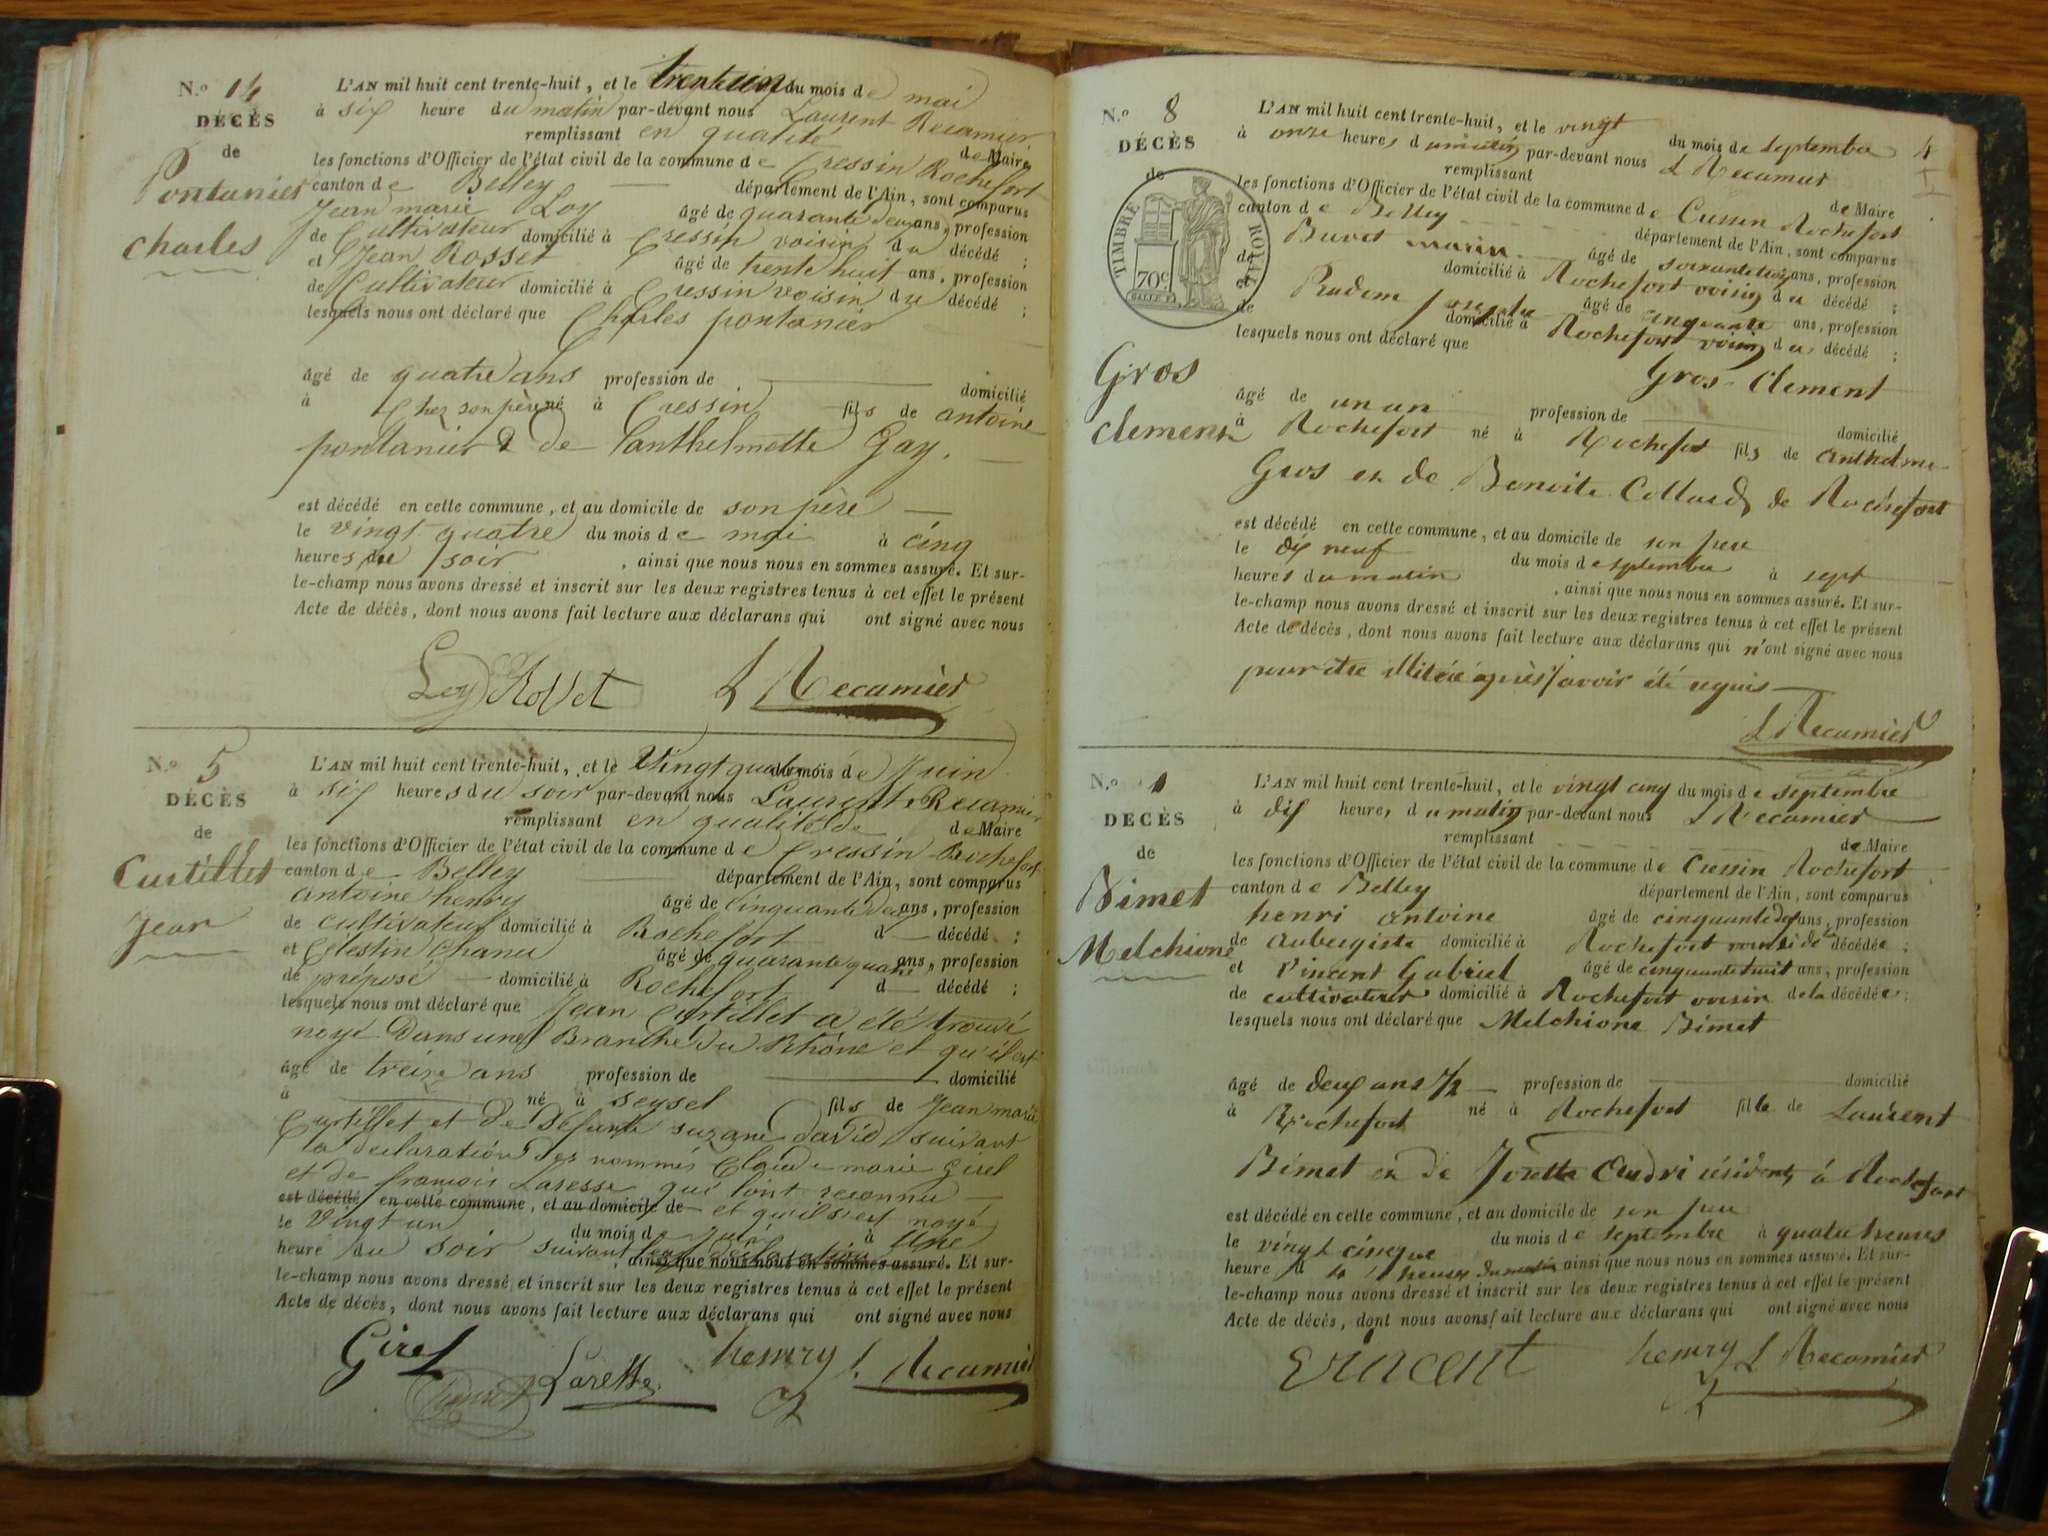 N.º 14
DÉCÈS
de
Pontanier
Charles
L'AN mil huit cent trente-huit, et le trente un du mois de mai
à six heure du matin par-devant nous Laurent Recamier
remplissant en qualité de Maire
les fonctions d'Officier de l'état civil de la commune de Cressin Rochefort
canton de Belley département de l'Ain, sont comparus
Jean marie Loy âgé de quarante deux ans, profession
de Cultivateur domicilié à Cressin voisin du décédé ;
et Jean Rosset âgé de trente huit ans, profession
de Cultivateur domicilié à Cressin voisin du décédé ;
lesquels nous ont déclaré que Charles pontanier
âgé de quatre ans profession de domicilié
à Chez son père né à Cressin fils de antoine
pontanier & de Panthelmette Gay.
est décédé en cette commune, et au domicile de son père
le vingt quatre du mois de mai à cinq
heures du soir, ainsi que nous nous en sommes assuré. Et sur-
le-champ nous avons dressé et inscrit sur les deux registres tenus à cet effet le présent
Acte de décès, dont nous avons fait lecture aux déclarans qui ont signé avec nous
Loy Rosset L Recamier
N.º 5
DÉCÈS
de
Curtillet
Jean
L'AN mil huit cent trente-huit, et le Vingt quatre du mois de Juin
à six heures du soir par-devant nous Laurent Recamier
remplissant en qualités de de Maire
les fonctions d'Officier de l'état civil de la commune de Cressin-Rochefort
canton de Belley département de l'Ain, sont comparus
antoine henry âgé de Cinquante deux ans, profession
de cultivateur domicilié à Rochefort d décédé ;
et Célestin Chanu âgé de quarante quatre ans, profession
de préposé domicilié à Rochefort d décédé ;
lesquels nous ont déclaré que Jean Curtillet a été trouvé
noyé Dans une Branche du Rhône et qu'il est
âgé de treize ans profession de domicilié
à né à seysel fils de Jean marie
Curtillet et de Défunte suzane david suivant
la déclaration des nommés Claude marie Girel
et de françois Laresse qui l'ont reconnu
est décédé en cette commune, et au domicile de et qu'il s'est noyé
le Vingt un du mois de Juin à une
heure du soir suivant leur déclaration, ainsi que nous nous en sommes assuré. Et sur-
le-champ nous avons dressé et inscrit sur les deux registres tenus à cet effet le présent
Acte de décès, dont nous avons fait lecture aux déclarans qui ont signé avec nous
Girel henry L. Recamier
N.º 8
DÉCÈS
de
TIMBRE ROYAL
70c
Gros
Clement
L'AN mil huit cent trente-huit, et le vingt du mois de septembre
à onze heures du matin par-devant nous L Recamier
remplissant de Maire
les fonctions d'Officier de l'état civil de la commune de Cressin Rochefort
canton de Belley département de l'Ain, sont comparus
Buvet marin âgé de soixante trois ans, profession
de domicilié à Rochefort voisin du décédé ;
et âgé de cinquante ans, profession
de domicilié à Rochefort voisin du décédé ;
lesquels nous ont déclaré que Gros Clement
âgé de un an profession de domicilié
à Rochefort né à Rochefort fils de anthelme
Gros et de Benoite Collard de Rochefort
est décédé en cette commune, et au domicile de son pere
le dix neuf du mois de septembre à sept
heures du matin, ainsi que nous nous en sommes assuré. Et sur-
le-champ nous avons dressé et inscrit sur les deux registres tenus à cet effet le présent
Acte de décès, dont nous avons fait lecture aux déclarans qui n'ont signé avec nous
pour être après avoir été requis
L Recamier
N.º
DÉCÈS
de
Bimet
Melchione
L'AN mil huit cent trente-huit, et le vingt cinq du mois de septembre
à dix heures du matin par-devant nous L Recamier
remplissant de Maire
les fonctions d'Officier de l'état civil de la commune de Cressin Rochefort
canton de Belley département de l'Ain, sont comparus
henri antoine âgé de cinquante deux ans, profession
de aubergiste domicilié à Rochefort voisin de la décédée ;
et Vincent Gabriel âgé de cinquante huit ans, profession
de cultivateur domicilié à Rochefort voisin de la décédée ;
lesquels nous ont déclaré que Melchione Bimet
âgé de deux ans 1/2 profession de domicilié
à Rochefort né à Rochefort fille de Laurent
Bimet et de Josette résidents à Rochefort
est décédé en cette commune, et au domicile de son pere
le vingt cinque du mois de septembre à quatre heures
heure d heures du matin ainsi que nous nous en sommes assuré. Et sur-
le-champ nous avons dressé et inscrit sur les deux registres tenus à cet effet le présent
Acte de décès, dont nous avons fait lecture aux déclarans qui ont signé avec nous
Vincent henry L Recamier